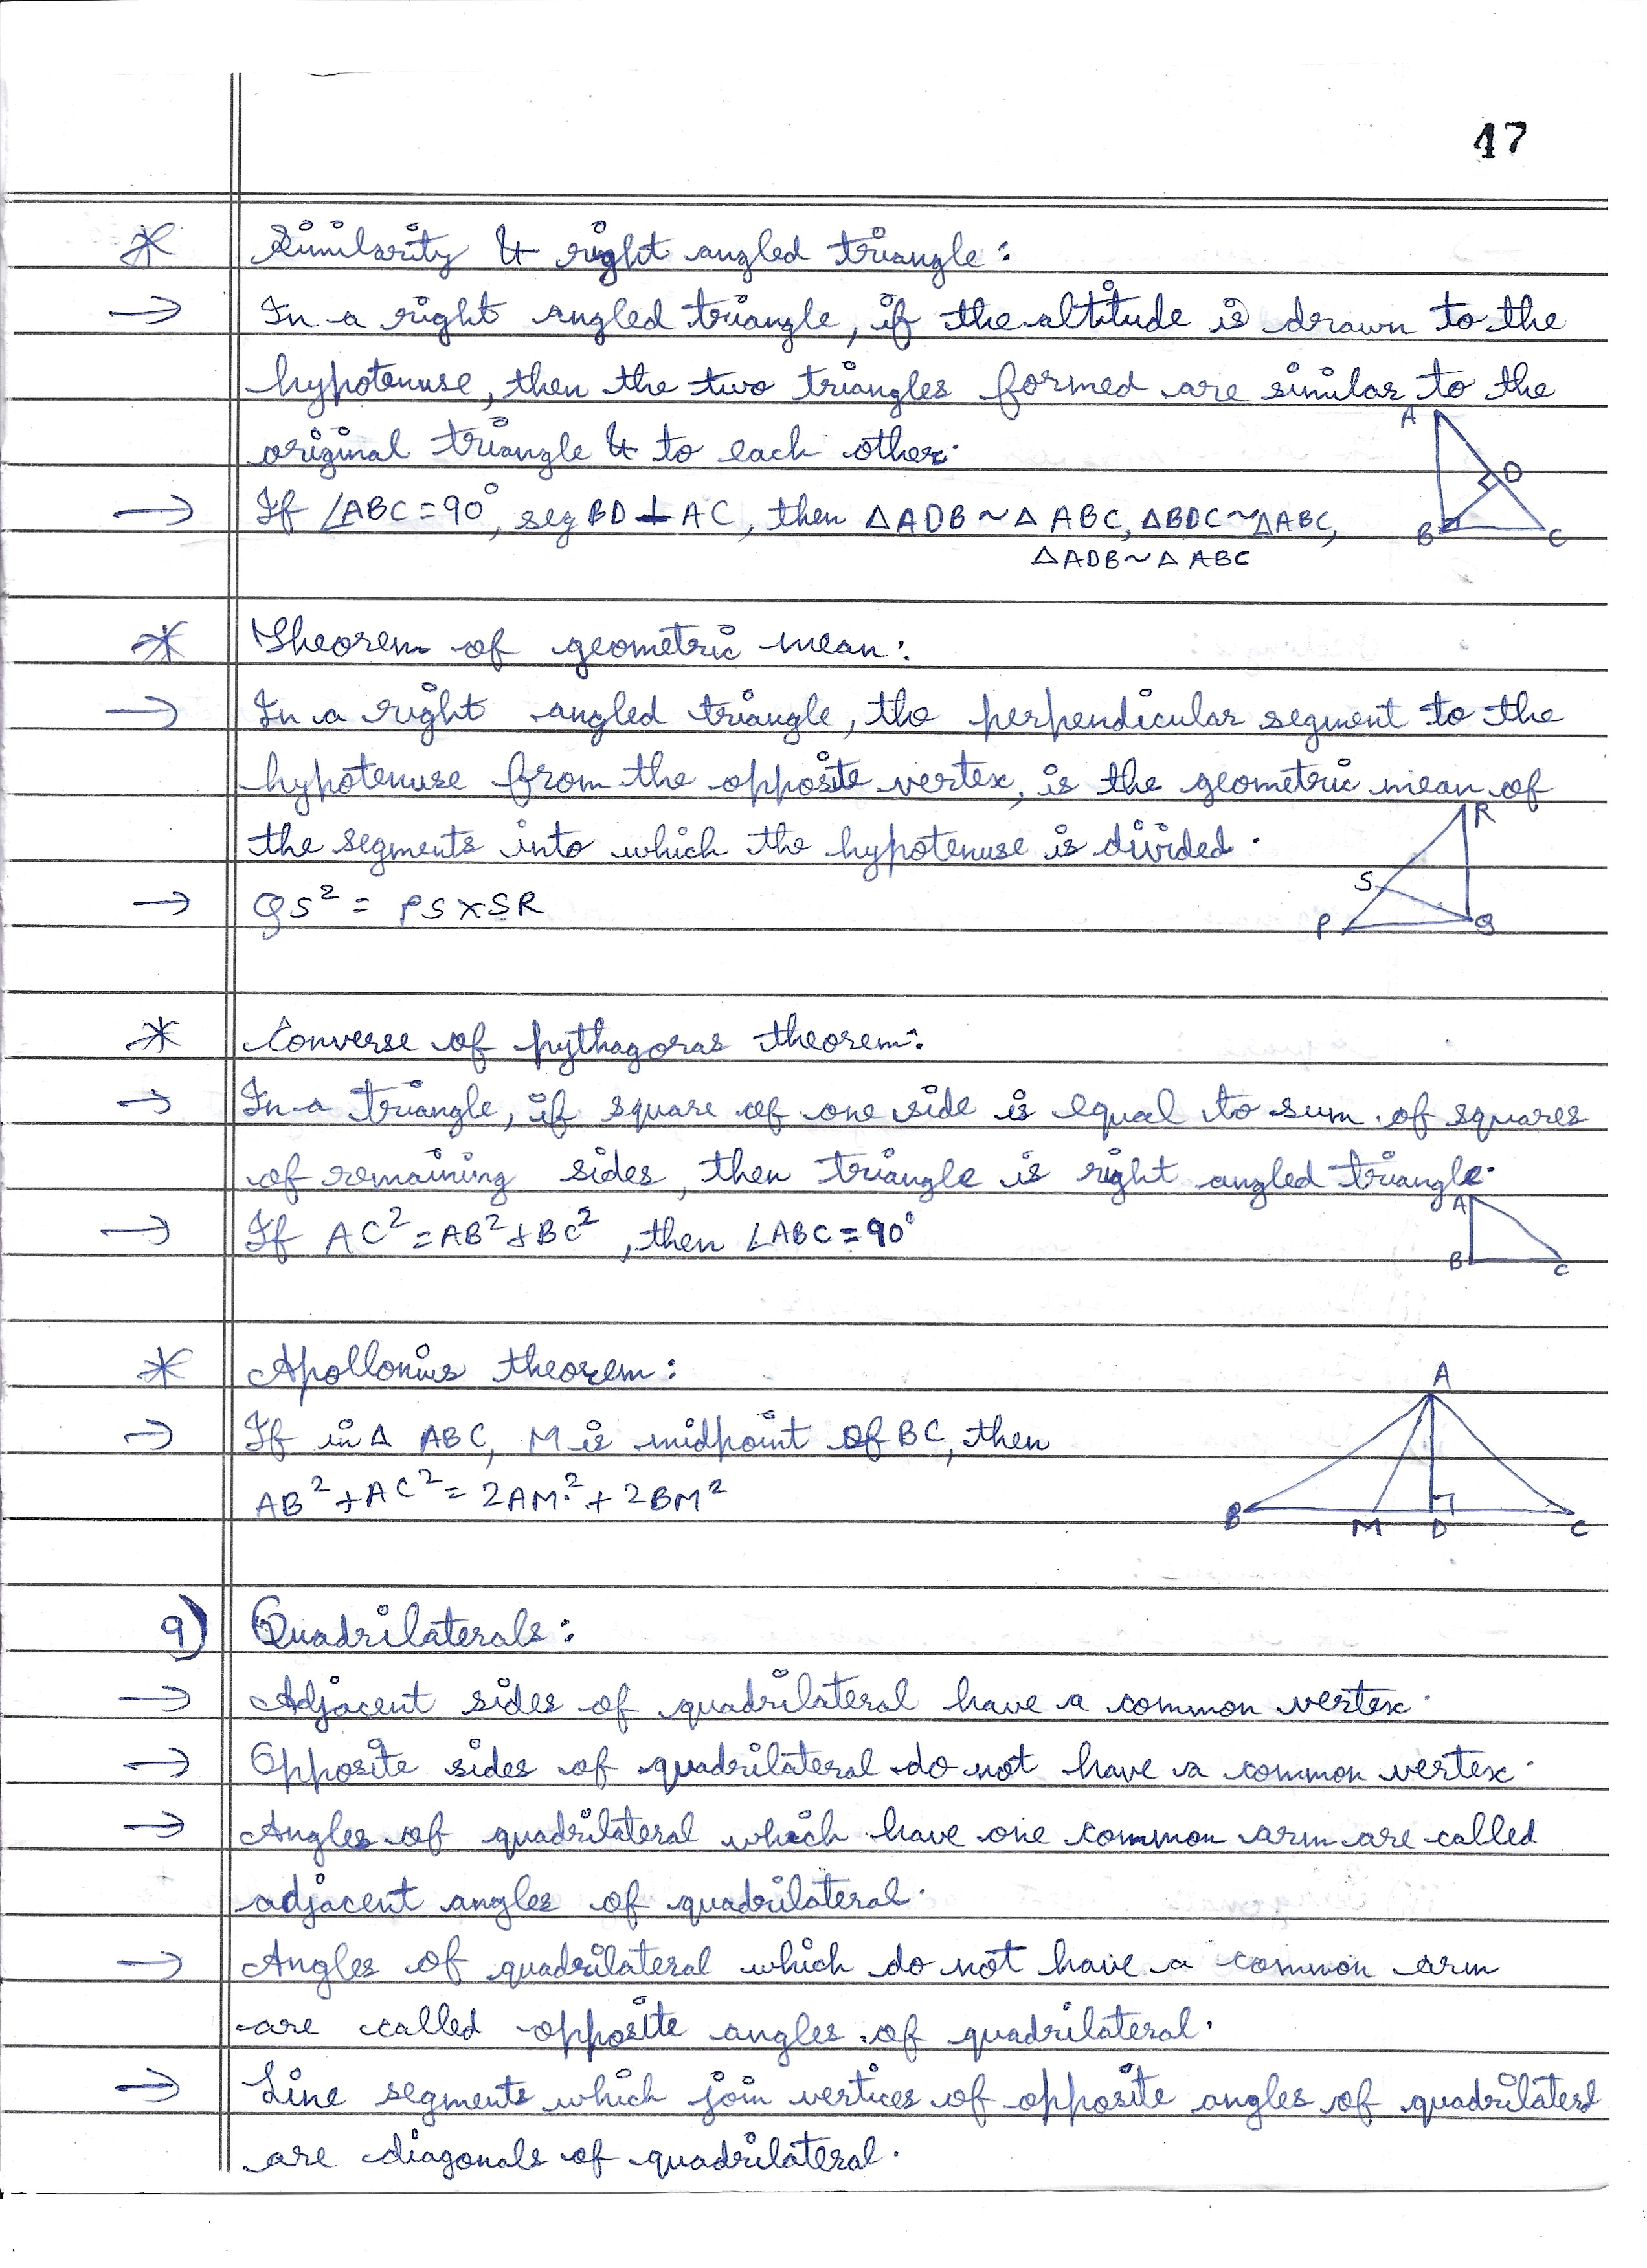 47
* Similarity & right angled triangle:
→ In a right angled triangle, if the altitude is drawn to the
hypotenuse, then the two triangles formed are similar to the
original triangle & to each other.
→ If ∠ABC = 90°, seg BD ⊥ AC, then △ADB ~ △ABC, △BDC ~ △ABC,
△ADB ~ △ABC
A
D
B
C
* Theorem of geometric mean:
→ In a right angled triangle, the perpendicular segment to the
hypotenuse from the opposite vertex, is the geometric mean of
the segments into which the hypotenuse is divided.
→ QS² = PS×SR
R
S
P
Q
* Converse of pythagoras theorem:
→ In a triangle, if square of one side is equal to sum of squares
of remaining sides, then triangle is right angled triangle.
→ If AC² = AB² + BC², then ∠ABC = 90°
A
B
C
* Apollonius theorem:
→ If in △ ABC, M is midpoint of BC, then
AB² + AC² = 2AM² + 2BM²
A
B
M
D
C
9) Quadrilaterals:
→ Adjacent sides of quadrilateral have a common vertex.
→ Opposite sides of quadrilateral do not have a common vertex.
→ Angles of quadrilateral which have one common arm are called
adjacent angles of quadrilateral.
→ Angles of quadrilateral which do not have a common arm
are called opposite angles of quadrilateral.
→ Line segments which join vertices of opposite angles of quadrilateral
are diagonals of quadrilateral.